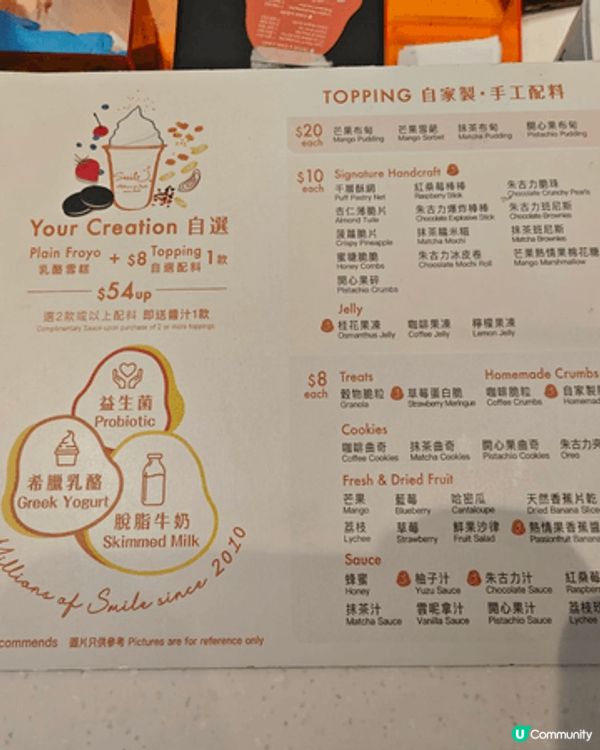 Smile
Your Creation 自選
Plain Froyo + $8 Topping 1款
乳酪雪糕 自選配料
$54up
選2款或以上配料 即送醬汁1款
Complimentary Sauce upon purchase of 2 or more toppings
益生菌
Probiotic
希臘乳酪
Greek Yogurt
脫脂牛奶
Skimmed Milk
Millions of Smile since 2010
commends 圖片只供參考 Pictures are for reference only
TOPPING 自家製·手工配料
$20 each
芒果布甸 芒果雪葩 抹茶布甸 開心果布甸
Mango Pudding Mango Sorbet Matcha Pudding Pistachio Pudding
$10 each
Signature Handcraft
千層酥網 紅桑莓棒棒 朱古力脆珠
Puff Pastry Net Raspberry Stick Chocolate Crunchy Pearls
杏仁薄脆片 朱古力爆炸棒棒 朱古力班尼斯
Almond Tuile Chocolate Explosive Stick Chocolate Brownies
菠蘿脆片 抹茶糯米糍 抹茶班尼斯
Crispy Pineapple Matcha Mochi Matcha Brownies
蜜糖脆脆 朱古力冰皮卷 芒果熱情果棉花糖
Honey Combs Chocolate Mochi Roll Mango Marshmallow
開心果碎
Pistachio Crumbs
Jelly
桂花果凍 咖啡果凍 檸檬果凍
Osmanthus Jelly Coffee Jelly Lemon Jelly
$8 each
Treats Homemade Crumbs
穀物脆粒 草莓蛋白脆 咖啡脆粒 自家製
Granola Strawberry Meringue Coffee Crumbs Homemad
Cookies
咖啡曲奇 抹茶曲奇 開心果曲奇 朱古力夾
Coffee Cookies Matcha Cookies Pistachio Cookies Oreo
Fresh & Dried Fruit
芒果 藍莓 哈密瓜 天然香蕉片乾
Mango Blueberry Cantaloupe Dried Banana Slice
荔枝 草莓 鮮果沙律 熱情果香蕉醬
Lychee Strawberry Fruit Salad Passionfruit Banana
Sauce
蜂蜜 柚子汁 朱古力汁 紅桑莓
Honey Yuzu Sauce Chocolate Sauce Raspberr
抹茶汁 雲呢拿汁 開心果汁 荔枝玫
Matcha Sauce Vanilla Sauce Pistachio Sauce Lychee
U Community